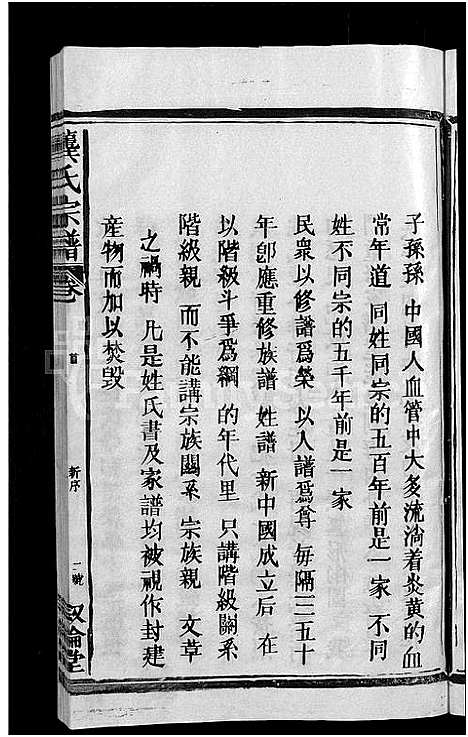 子孫孫 中國人血管中大多流淌着炎黃的血
常年道 同姓同宗的五百年前是一家 不同
姓不同宗的五千年前是一家
民衆以修譜爲榮 以人譜爲尊 每隔二三五十
年卽應重修族譜 姓譜 新中國成立后 在
以階級斗爭爲綱 的年代里 只講階級關系
階級親 而不能講宗族關系 宗族親 文革
之禍時 凡是姓氏書及家譜均被視作封建
産物而加以焚毁
龔氏宗譜 卷 首 新序 二號 敘倫堂